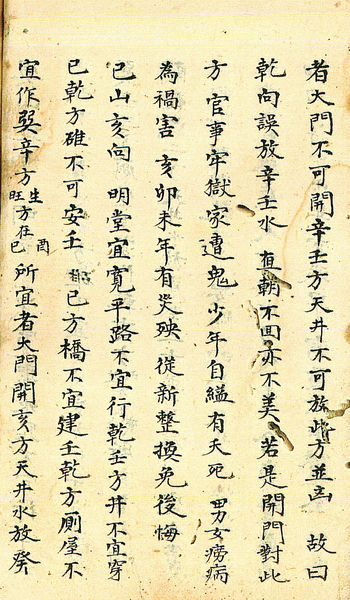 者大門不可開辛壬方天井不可放此方並凶 故曰
乾向誤放辛壬水 直朝不回亦不美 若是開門對此
方 官事牢獄家遭鬼 少年自縊有夭死 男女癆病
為禍害 亥卯未年有災殃 從新整換免後悔
巳山亥向 明堂宜寬平路不宜行乾壬方井不宜穿
巳乾方碓不可安壬 巳方橋不宜建壬乾方厠屋不
宜作巽辛方生旺方在酉巳所宜者大門開亥方天井水放癸